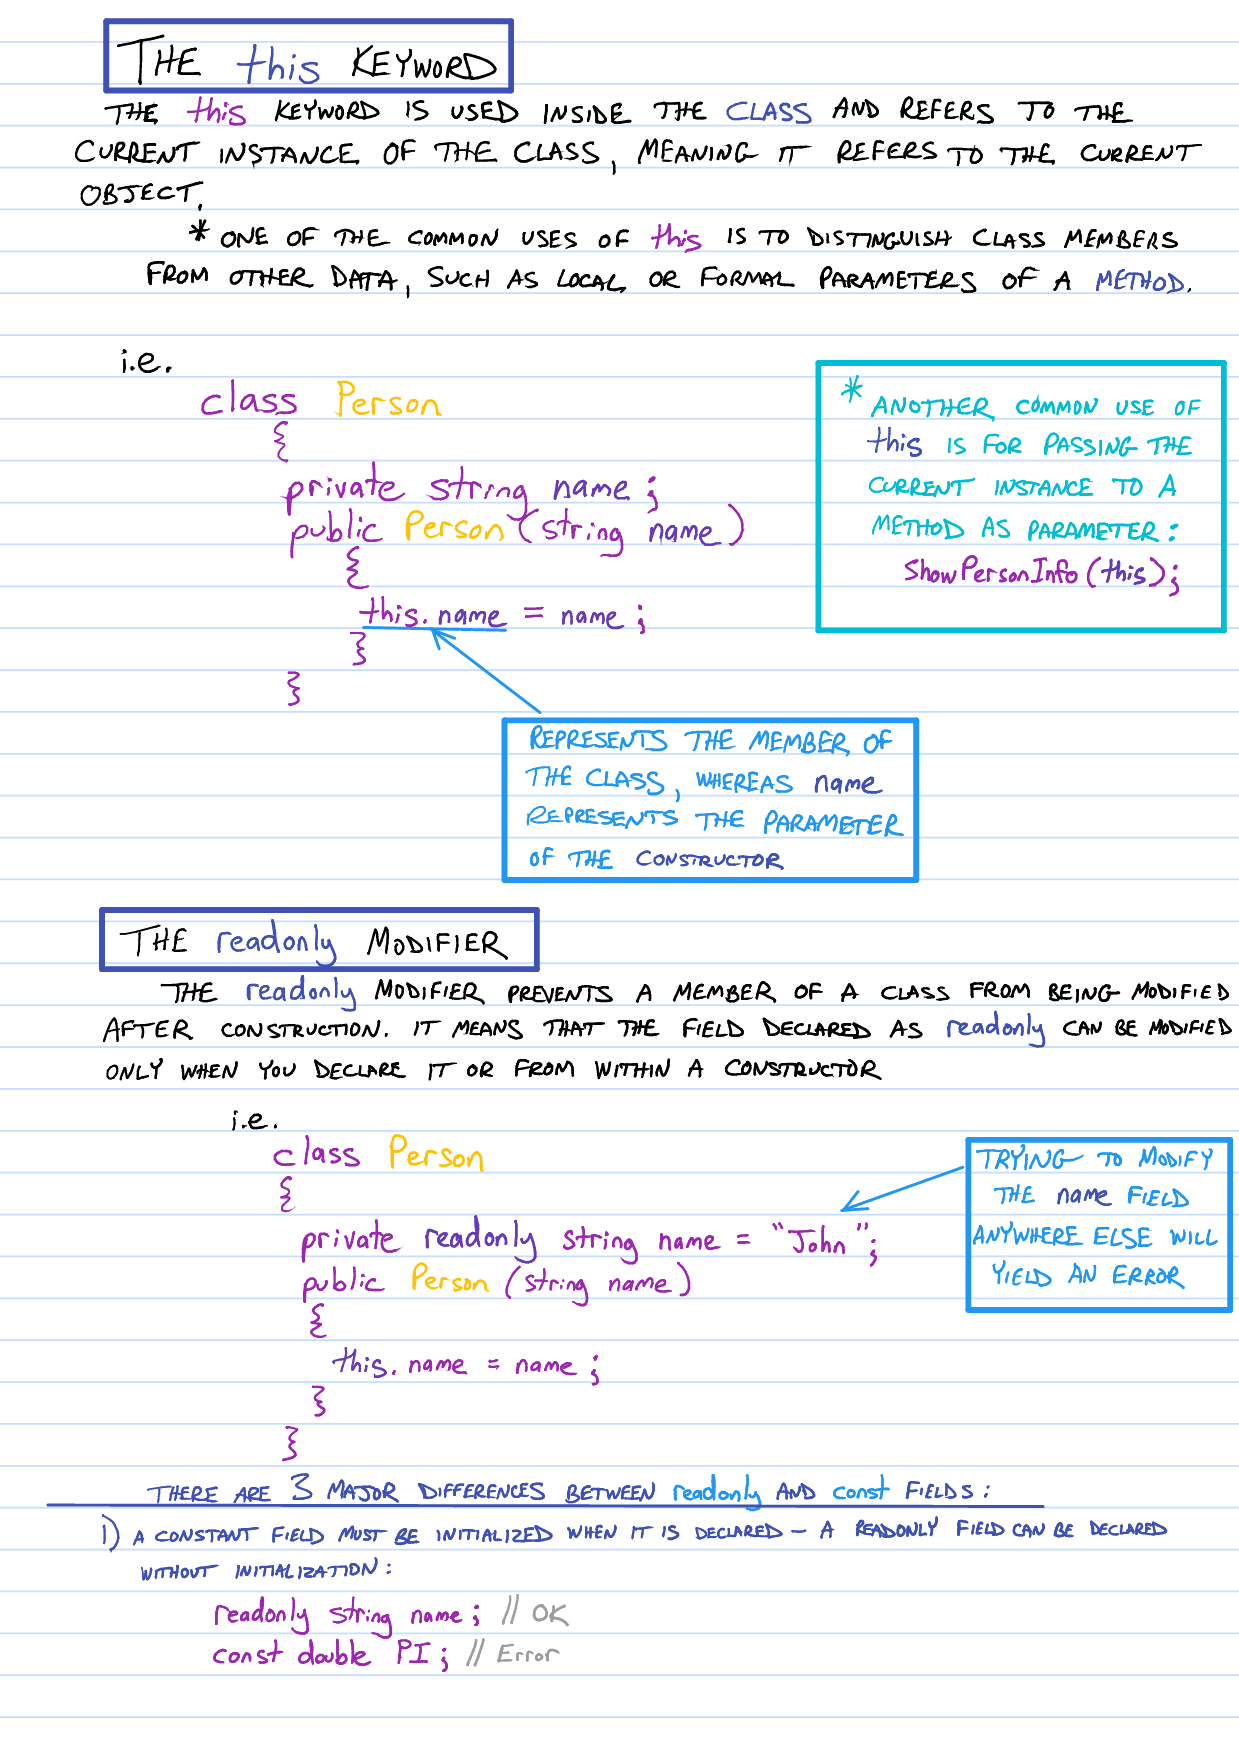 THE this KEYWORD
THE this KEYWORD IS USED INSIDE THE CLASS AND REFERS TO THE
CURRENT INSTANCE OF THE CLASS, MEANING IT REFERS TO THE CURRENT
OBJECT.
* ONE OF THE COMMON USES OF this IS TO DISTINGUISH CLASS MEMBERS
FROM OTHER DATA, SUCH AS LOCAL OR FORMAL PARAMETERS OF A METHOD.
i.e.
class Person
{
private string name;
public Person(string name)
{
this.name = name;
}
}
* ANOTHER COMMON USE OF
this IS FOR PASSING THE
CURRENT INSTANCE TO A
METHOD AS PARAMETER:
ShowPersonInfo(this);
REPRESENTS THE MEMBER OF
THE CLASS, WHEREAS name
REPRESENTS THE PARAMETER
OF THE CONSTRUCTOR
THE readonly MODIFIER
THE readonly MODIFIER PREVENTS A MEMBER OF A CLASS FROM BEING MODIFIED
AFTER CONSTRUCTION. IT MEANS THAT THE FIELD DECLARED AS readonly CAN BE MODIFIED
ONLY WHEN YOU DECLARE IT OR FROM WITHIN A CONSTRUCTOR
i.e.
class Person
{
private readonly string name = "John";
public Person(string name)
{
this.name = name;
}
}
TRYING TO MODIFY
THE name FIELD
ANYWHERE ELSE WILL
YIELD AN ERROR
THERE ARE 3 MAJOR DIFFERENCES BETWEEN readonly AND const FIELDS:
1) A CONSTANT FIELD MUST BE INITIALIZED WHEN IT IS DECLARED - A READONLY FIELD CAN BE DECLARED
WITHOUT INITIALIZATION:
readonly string name; // OK
const double PI; // Error